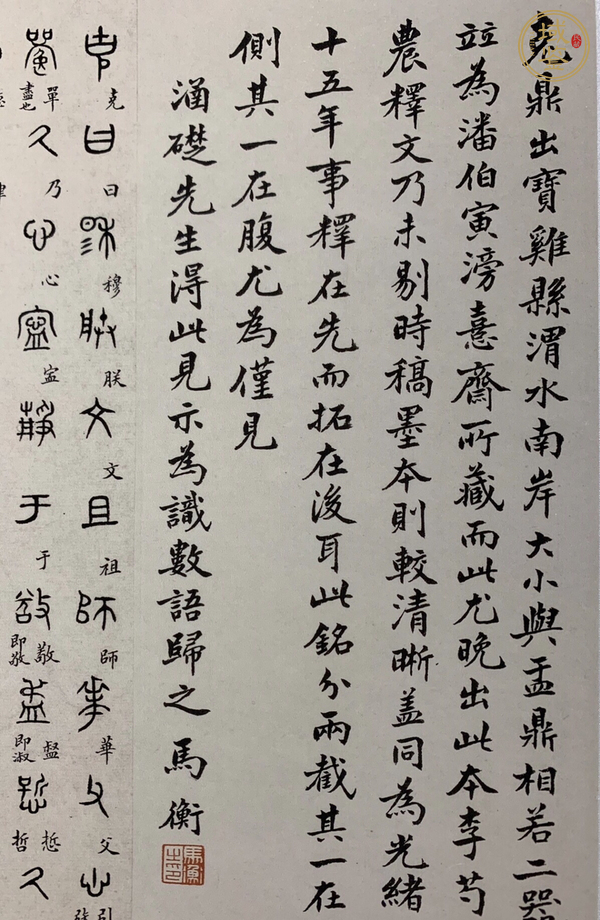 克鼎出寶雞縣渭水南岸大小與盂鼎相若二器
竝為潘伯寅滂憙齋所藏而此尤晚出此本李芍
農釋文乃未剔時稿墨本則較清晰蓋同為光緒
十五年事釋在先而拓在後耳此銘分兩截其一在
側其一在腹尤為僅見
湎礎先生得此見示為識數語歸之馬衡
克曰穆朕文祖師華父
單盡也乃心寍于敬即敬盄即淑悊哲